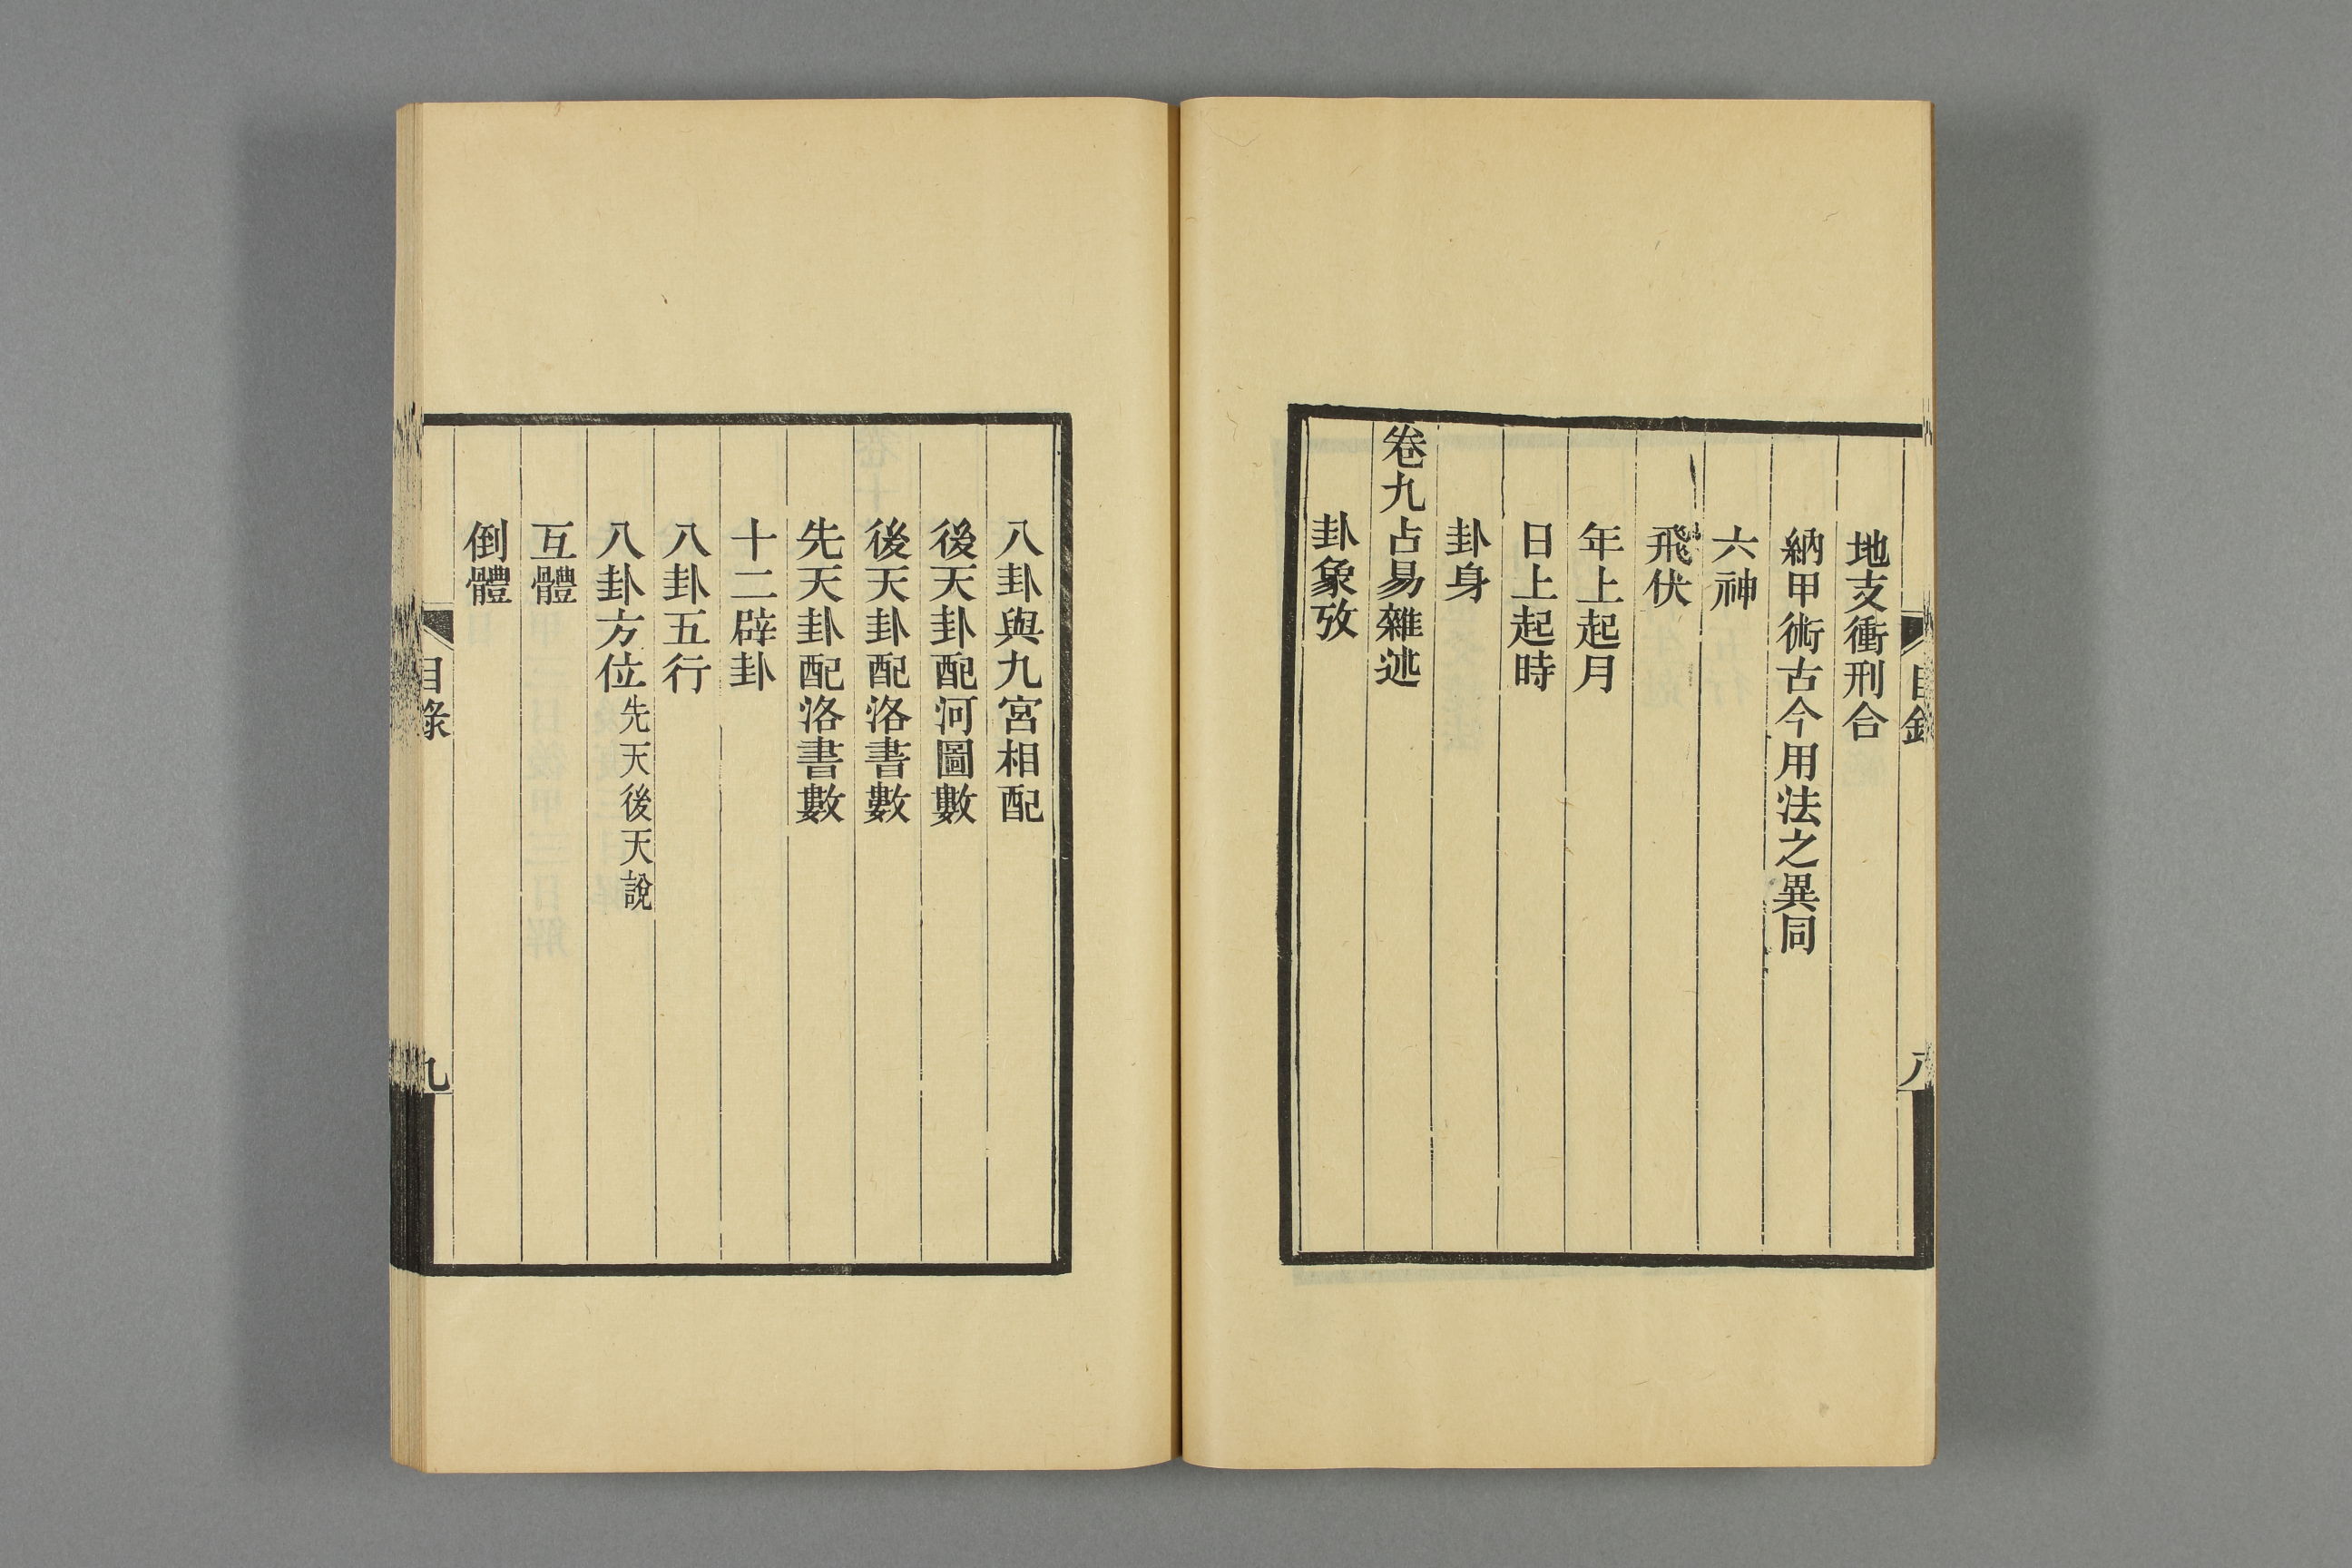 地支衝刑合
納甲術古今用法之異同
六神
飛伏
年上起月
日上起時
卦身
卷九占易雜述
卦象攷
八卦與九宮相配
後天卦配河圖數
後天卦配洛書數
先天卦配洛書數
十二辟卦
八卦五行
八卦方位先天後天說
互體
倒體
目錄
九